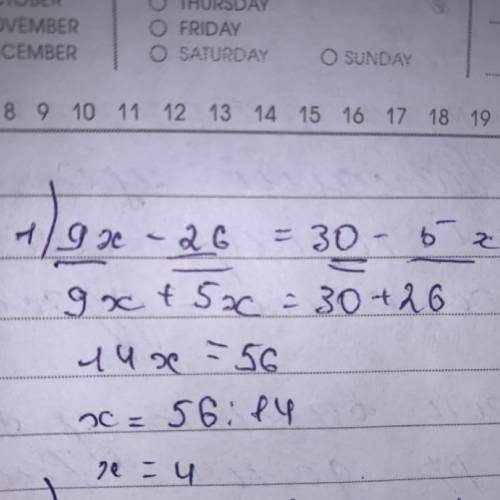 THURSDAY
OVEMBER ○ FRIDAY
CEMBER ○ SATURDAY ○ SUNDAY
8 9 10 11 12 13 14 15 16 17 18 19
1) 9x - 26 = 30 - 5x
9x + 5x = 30 + 26
14x = 56
x = 56 : 14
x = 4